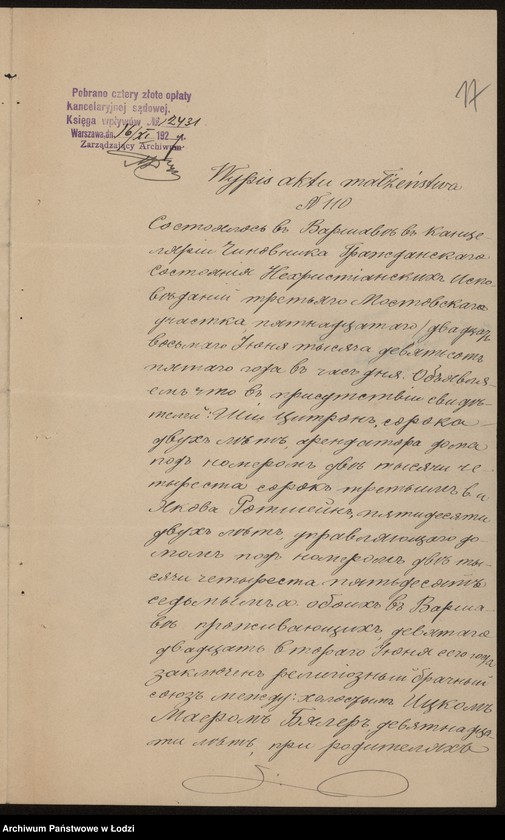 17
Pobrano cztery złote opłaty
Kancelaryjnej sądowej.
Księga wpływów № 12431
Warszawa, dn. 16/XI 192
Zarządzający Archiwum
Wypis aktu małżeństwa
N 110
Состоялось въ Варшавѣ въ Канце-
ляріи Чиновника Гражданскаго
Состоянія Нехристіанскихъ Испо-
вѣданій третьяго Мостовскаго
участка, пятнадцатаго /двадцать
восьмаго Іюня тысяча девятьсотъ
пятаго года въ часъ дня. Объявля-
емъ что въ присутствіи свидѣ-
телей: Шіи Цитронъ, сорока
двухъ лѣтъ, арендатора дома
подъ номеромъ двѣ тысячи че-
тыреста сорокъ третьимъ в и
Якова Ротштейнъ, пятидесяти
двухъ лѣтъ, управляющаго до-
момъ подъ номеромъ двѣ ты-
сячи четыреста пятьдесятъ
седьмымъ а. обоихъ въ Варша-
вѣ проживающихъ, девятаго
двадцать втораго Іюня сего года
заключенъ религіозный брачный
союзъ между: холостымъ Ицкомъ
Маеромъ Бялеръ, девятнадца-
ти лѣтъ, при родителяхъ
Archiwum Państwowe w Łodzi